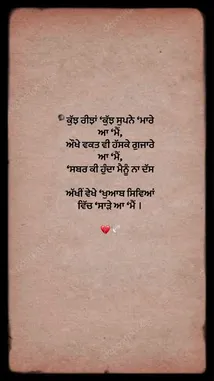 ਕੁੱਝ ਰੀਝਾਂ 'ਕੁੱਝ ਸੁਪਨੇ 'ਮਾਰੇ
ਆ 'ਮੈਂ,
ਔਖੇ ਵਕਤ ਵੀ ਹੱਸਕੇ ਗੁਜਾਰੇ
ਆ 'ਮੈਂ,
'ਸਬਰ ਕੀ ਹੁੰਦਾ ਮੈਨੂੰ ਨਾ ਦੱਸ
ਅੱਖੀਂ ਵੇਖੇ 'ਖੁਆਬ ਸਿਵਿਆਂ
ਵਿੱਚ 'ਸਾੜੇ ਆ 'ਮੈਂ ।